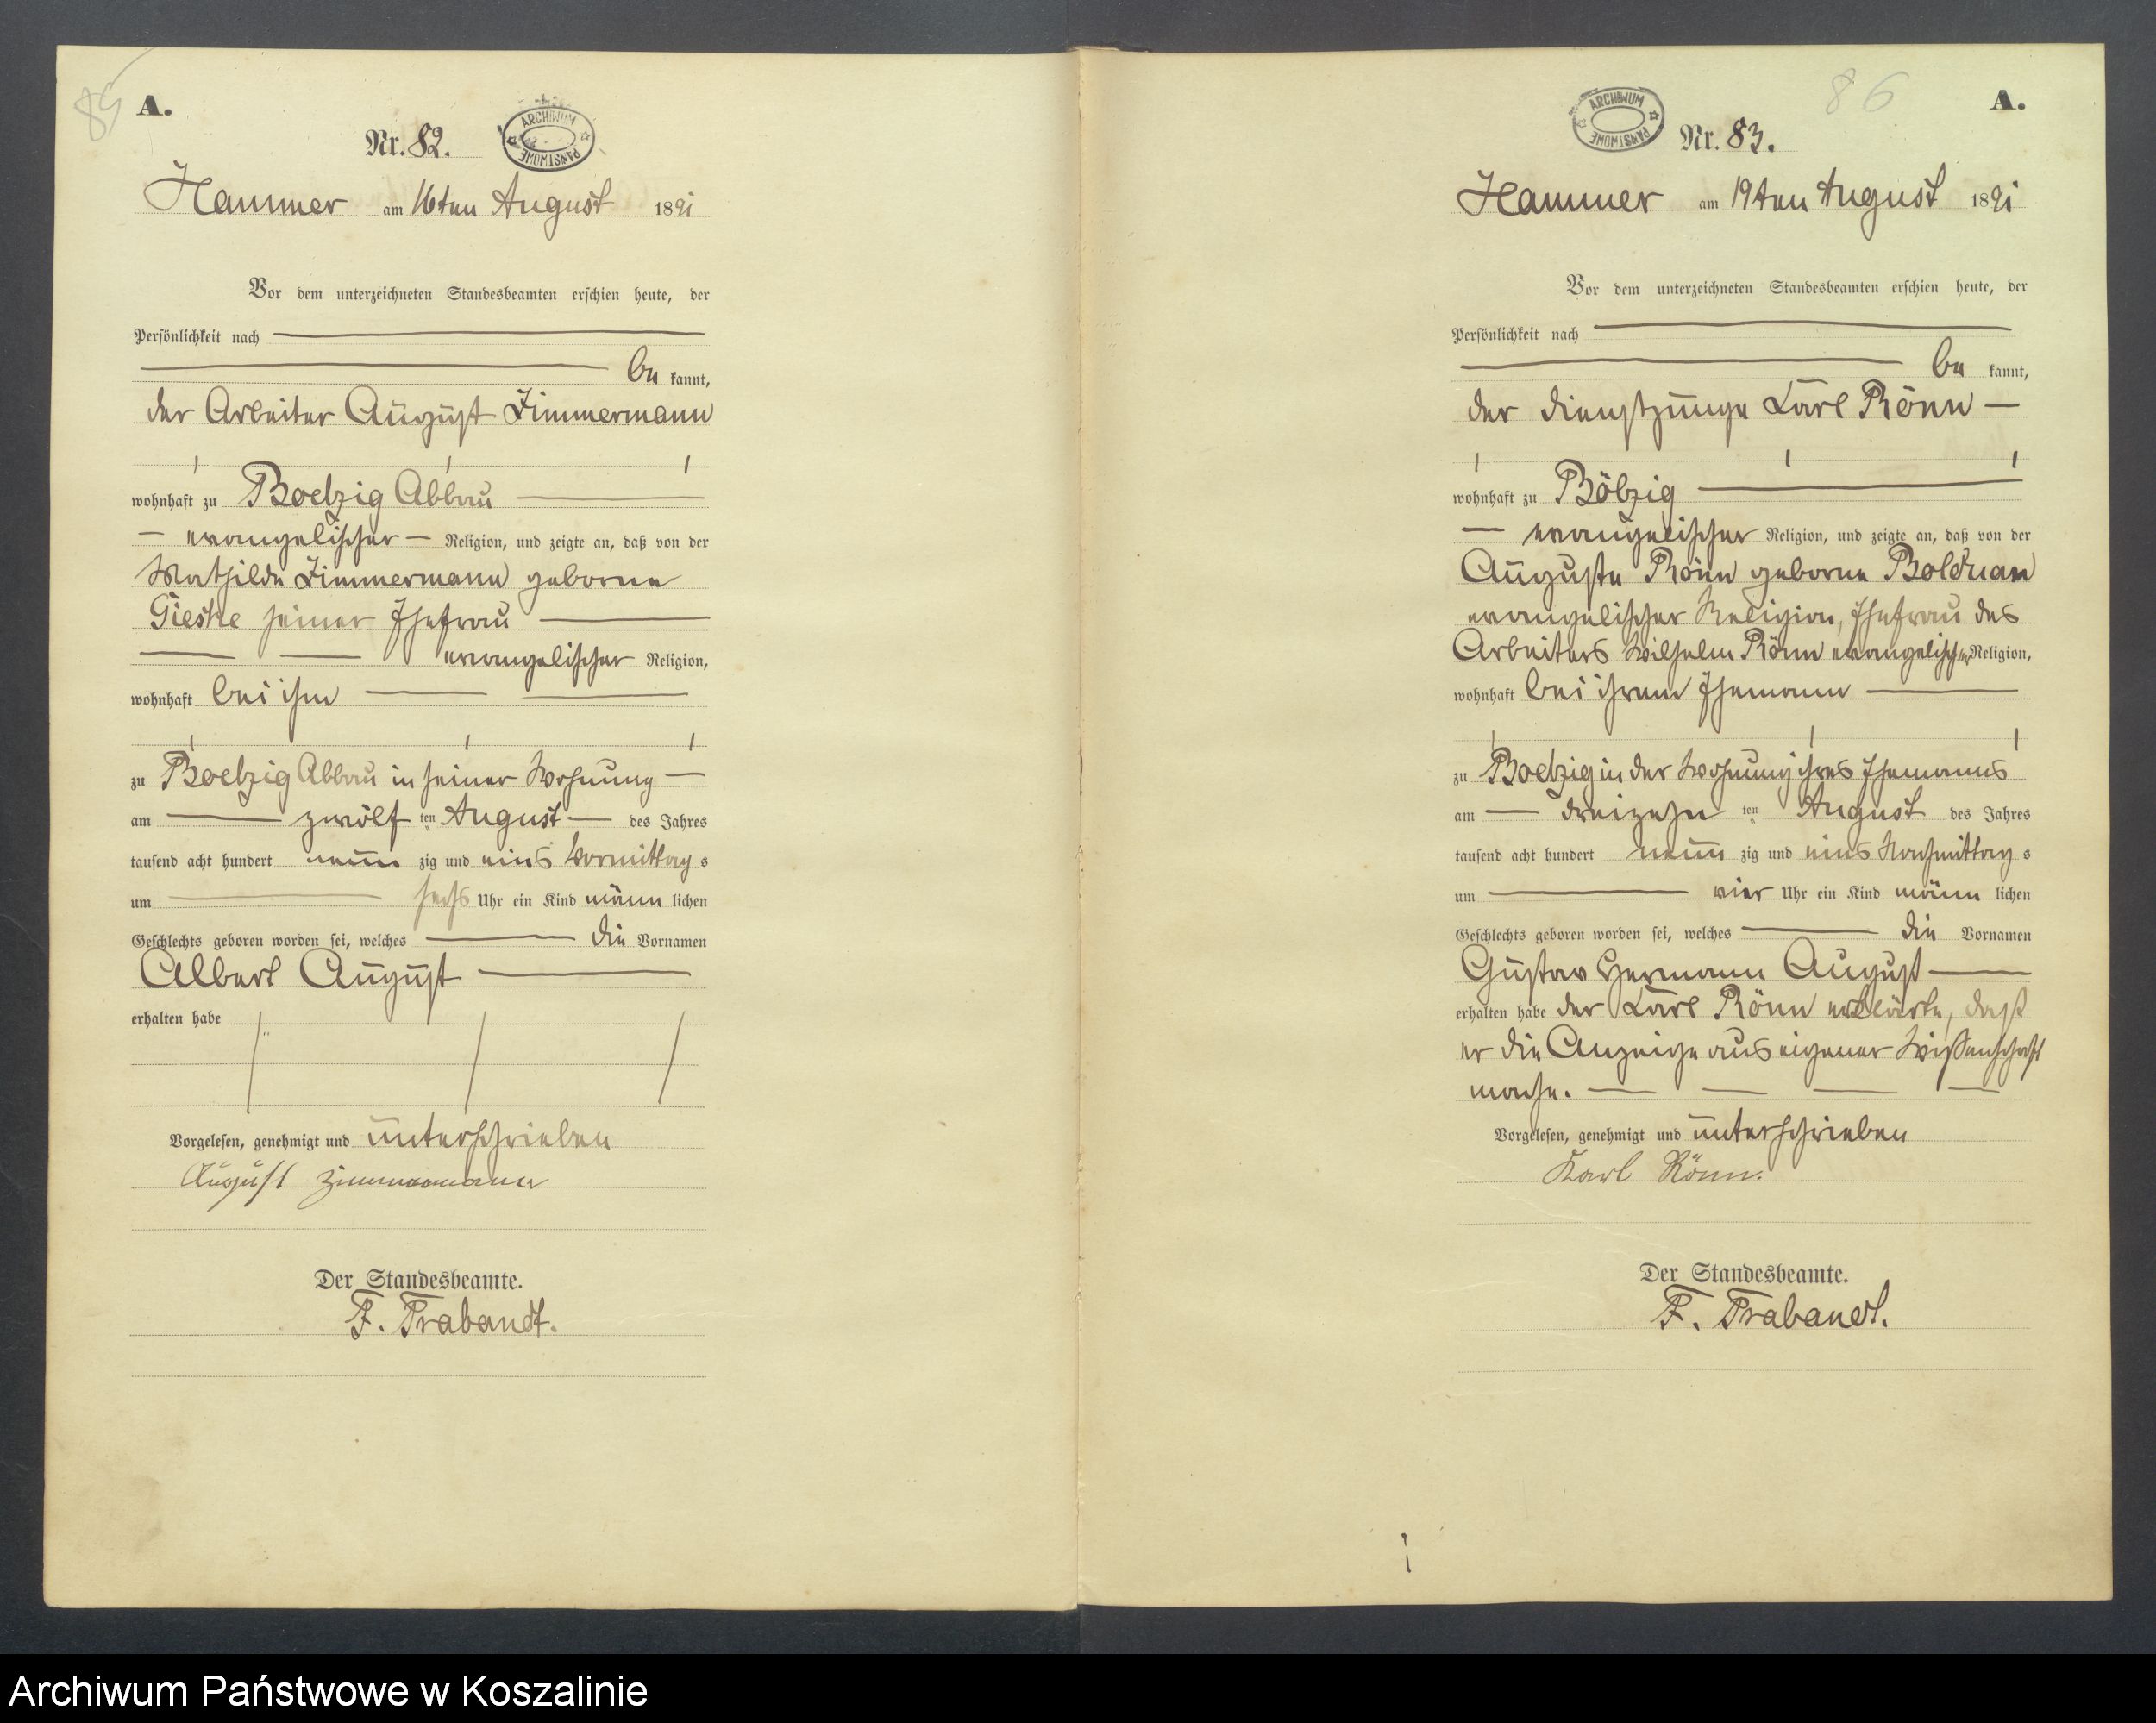 85
A.
Nr. 82.
ARCHIWUM PAŃSTWOWE
Hammer am 16ten August 1891
Vor dem unterzeichneten Standesbeamten erschien heute, der
Persönlichkeit nach
be kannt,
der Arbeiter August Zimmermann
wohnhaft zu Boelzig Abbau
evangelischer Religion, und zeigte an, daß von der
Mathilde Zimmermann geborne
Gieske seiner Ehefrau
evangelischer Religion,
wohnhaft bei ihm
zu Boelzig Abbau in seiner Wohnung
am zwölf ten August des Jahres
tausend acht hundert neun zig und eins Vormittag s
um sechs Uhr ein Kind männ lichen
Geschlechts geboren worden sei, welches die Vornamen
Albert August
erhalten habe
Vorgelesen, genehmigt und unterschrieben
August Zimmermann
Der Standesbeamte.
F. Trabandt.
86
A.
ARCHIWUM PAŃSTWOWE
Nr. 83.
Hammer am 19ten August 1891
Vor dem unterzeichneten Standesbeamten erschien heute, der
Persönlichkeit nach
be kannt,
der Dienstjunge Karl Rönn
wohnhaft zu Bölzig
evangelischer Religion, und zeigte an, daß von der
Auguste Rönn geborne Bolduan
evangelischer Religion, Ehefrau des
Arbeiters Wilhelm Rönn evangelischer Religion,
wohnhaft bei ihrem Ehemann
zu Boelzig in der Wohnung ihres Ehemanns
am dreizehn ten August des Jahres
tausend acht hundert neun zig und eins Nachmittag s
um vier Uhr ein Kind männ lichen
Geschlechts geboren worden sei, welches die Vornamen
Gustav Hermann August
erhalten habe der Karl Rönn erklärte, daß
er die Anzeige aus eigener Wissenschaft
mache.
Vorgelesen, genehmigt und unterschrieben
Karl Rönn.
Der Standesbeamte.
F. Trabandt.
Archiwum Państwowe w Koszalinie